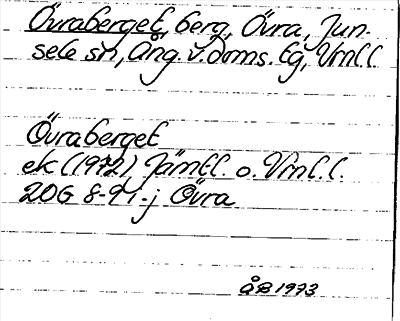 Övraberget, berg, Övra, Jun-
sele sn, Ång. v. doms. tg, Vrnl. l.
Övraberget
ek (1972) Jämtl. o. Vrnl. l.
20G 8-9 i-j Övra
ÅB 1973